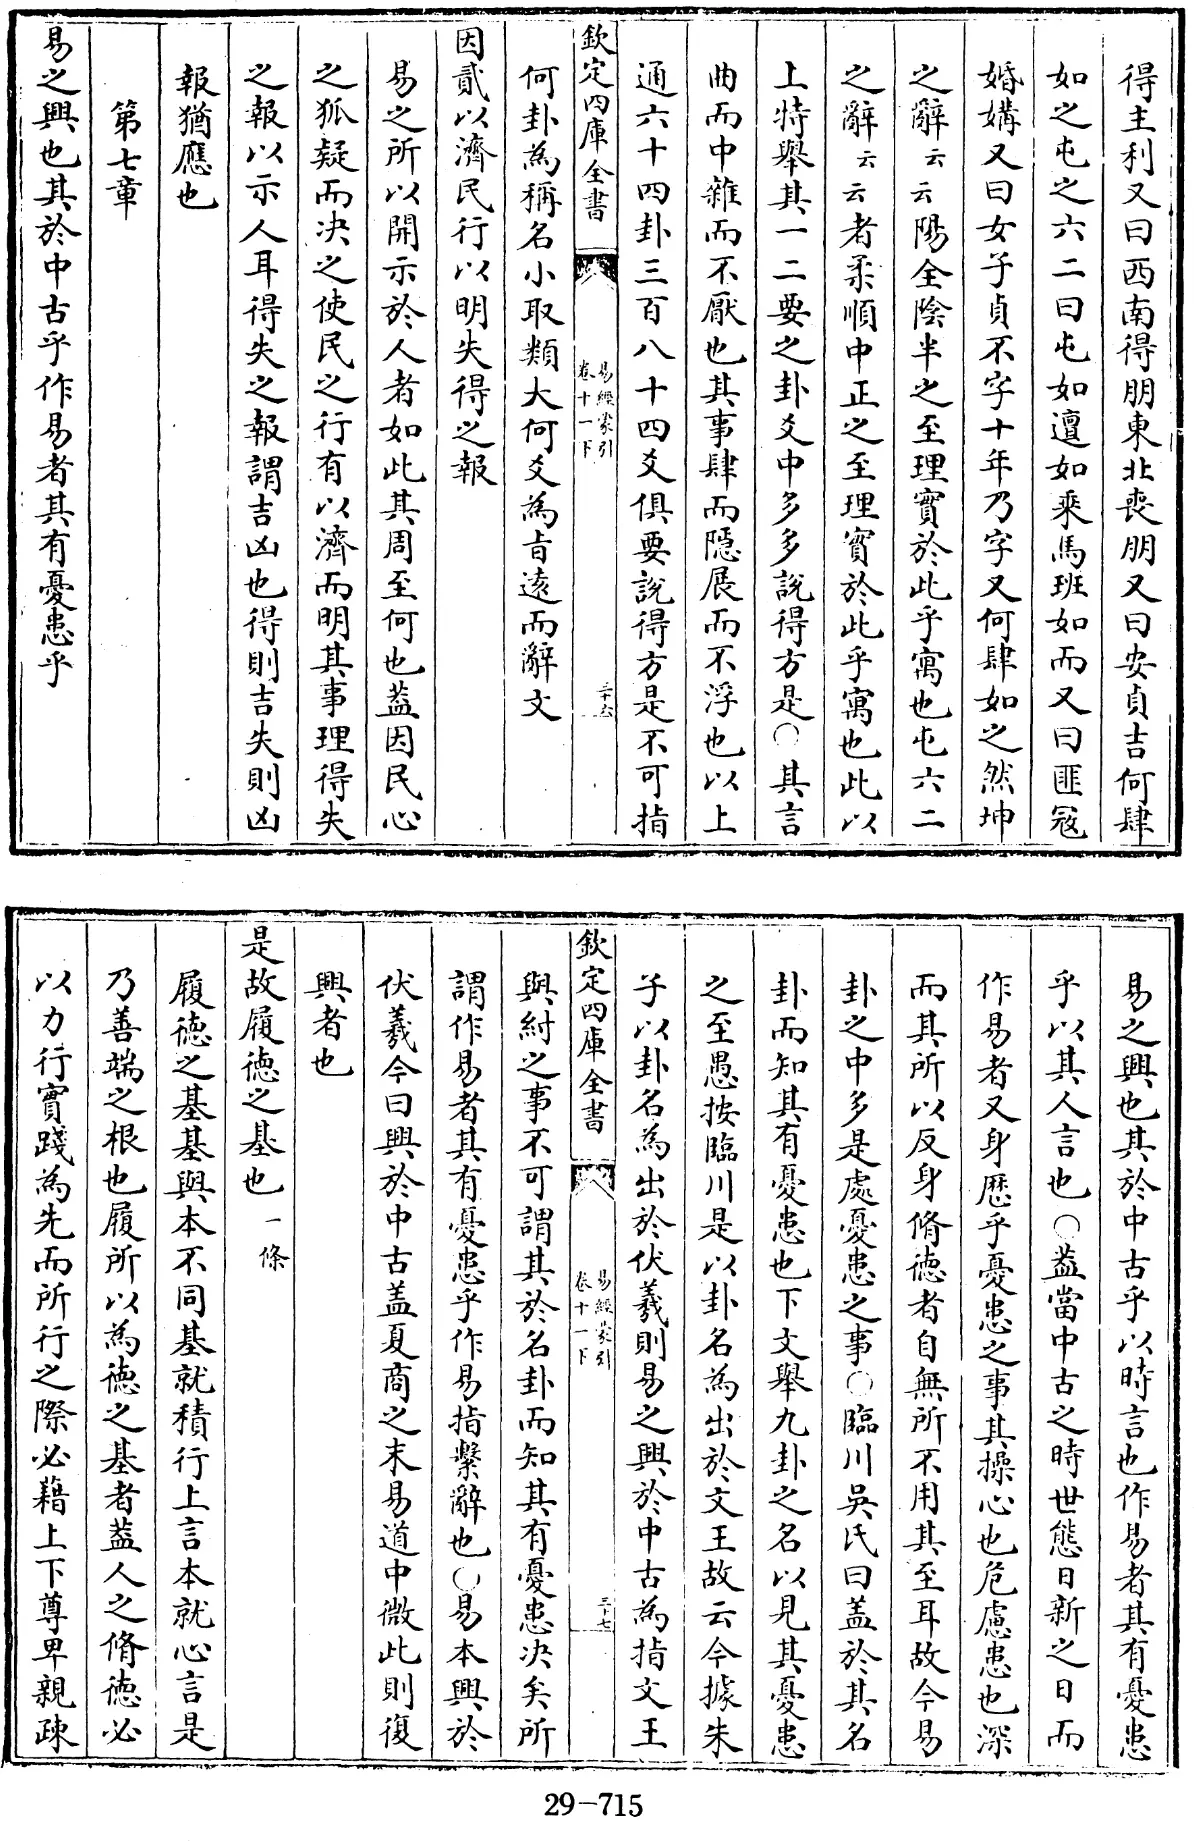 得主利又曰西南得朋東北喪朋又曰安貞吉何肆
如之屯之六二曰屯如邅如乘馬班如而又曰匪寇
婚媾又曰女子貞不字十年乃字又何肆如之然坤
之辭云云陽全陰半之至理實於此乎寓也屯六二
之辭云云者柔順中正之至理實於此乎寓也此以
上特舉其一二要之卦爻中多多說得方是○其言
曲而中雜而不厭也其事肆而隱展而不浮也以上
通六十四卦三百八十四爻俱要說得方是不可指
欽定四庫全書
易經蒙引
卷十一下
三十六
何卦為稱名小取類大何爻為旨遠而辭文
因貳以濟民行以明失得之報
易之所以開示於人者如此其周至何也葢因民心
之狐疑而決之使民之行有以濟而明其事理得失
之報以示人耳得失之報謂吉凶也得則吉失則凶
報猶應也
第七章
易之興也其於中古乎作易者其有憂患乎
易之興也其於中古乎以時言也作易者其有憂患
乎以其人言也○葢當中古之時世態日新之日而
作易者又身歷乎憂患之事其操心也危慮患也深
而其所以反身脩德者自無所不用其至耳故今易
卦之中多是處憂患之事○臨川吳氏曰葢於其名
卦而知其有憂患也下文舉九卦之名以見其憂患
之至愚按臨川是以卦名為出於文王故云今據朱
子以卦名為出於伏羲則易之興於中古為指文王
欽定四庫全書
易經蒙引
卷十一下
三十七
與紂之事不可謂其於名卦而知其有憂患决矣所
謂作易者其有憂患乎作易指繫辭也○易本興於
伏羲今曰興於中古葢夏商之末易道中微此則復
興者也
是故履德之基也一條
履德之基基與本不同基就積行上言本就心言是
乃善端之根也履所以為德之基者葢人之脩德必
以力行實踐為先而所行之際必藉上下尊卑親疎
29-715